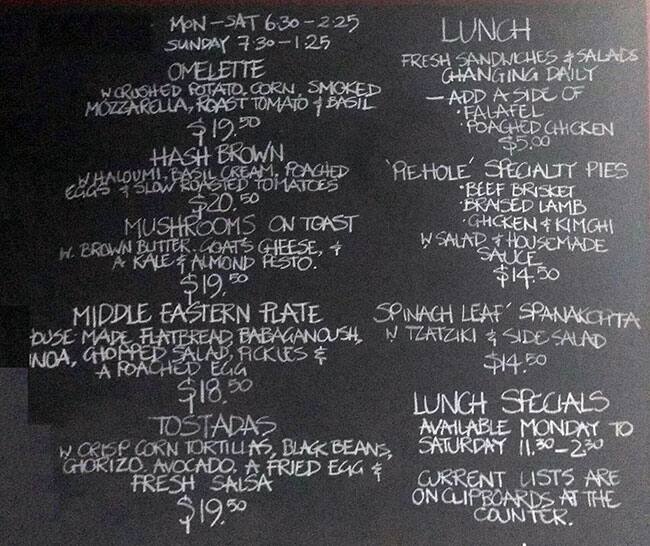 MON-SAT 6:30-2:25
SUNDAY 7:30-1:25
OMELETTE
W CRUSHED POTATO, CORN, SMOKED
MOZZARELLA, ROAST TOMATO & BASIL
$19.50
HASH BROWN
W HALOUMI, BASIL CREAM, POACHED
EGGS & SLOW ROASTED TOMATOES
$20.50
MUSHROOMS ON TOAST
W. BROWN BUTTER, GOATS CHEESE, &
A KALE & ALMOND PESTO.
$19.50
MIDDLE EASTERN PLATE
OUSE MADE FLATBREAD, BABAGANOUSH,
NOA, CHOPPED SALAD, PICKLES &
A POACHED EGG
$18.50
TOSTADAS
W. CRISP CORN TORTILIAS, BLACK BEANS,
CHORIZO, AVOCADO, A FRIED EGG &
FRESH SALSA
$19.50
LUNCH
FRESH SANDWICHES & SALADS
CHANGING DAILY
- ADD A SIDE OF
• FALAFEL
• POACHED CHICKEN
$5.00
'PIEHOLE' SPECIALTY PIES
• BEEF BRISKET
• BRAISED LAMB
• CHICKEN & KIMCHI
W SALAD & HOUSEMADE
SAUCE
$14.50
SPINACH LEAF' SPANAKOPITA
W TZATZIKI & SIDE SALAD
$14.50
LUNCH SPECIALS
AVAILABLE MONDAY TO
SATURDAY 11.30-2.30
CURRENT LISTS ARE
ON CLIPBOARDS AT THE
COUNTER.